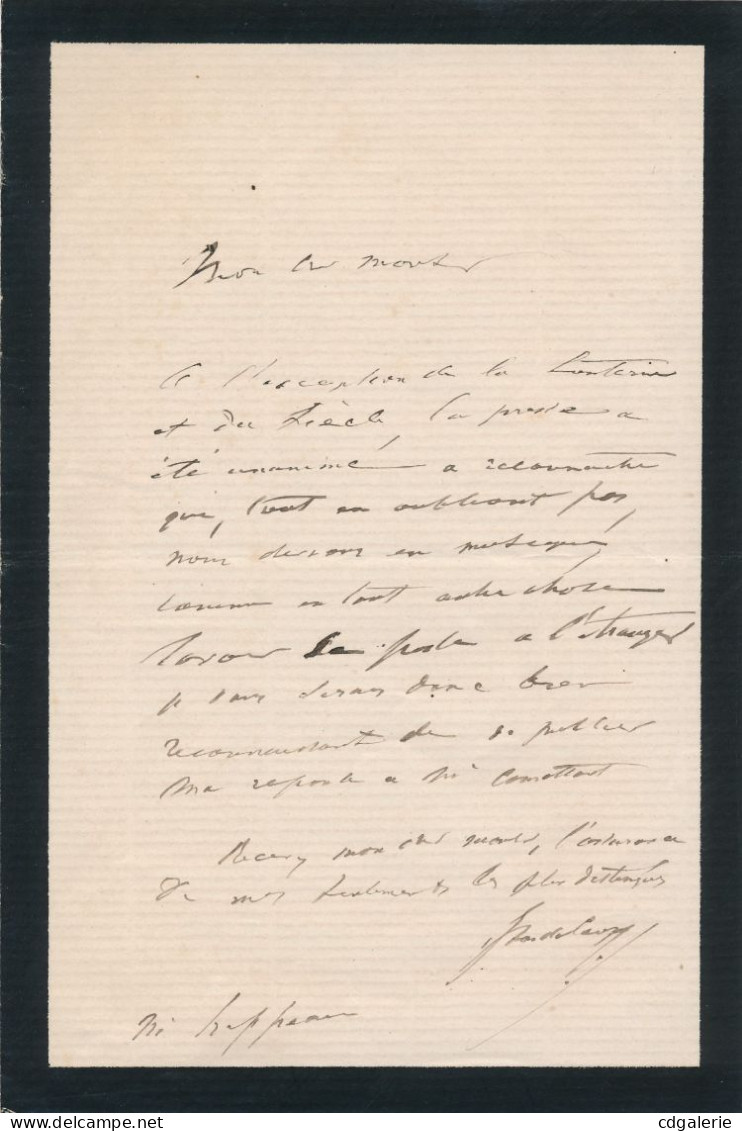 Mon cher monsieur
à l'exception de la Lanterne
et du Siècle, la presse a
été unanime à reconnaitre
que, tout en oubliant pas,
nous devons en musique,
comme en tout autre chose
la porte a l'étranger
je vous serais donc bien
reconnaissant de publier
ma reponse a Mr Comettant
Recevez mon cher monsieur, l'assurance
de mes sentiments les plus distingués
J. Pasdeloup
Mr Happeau
cdgalerie